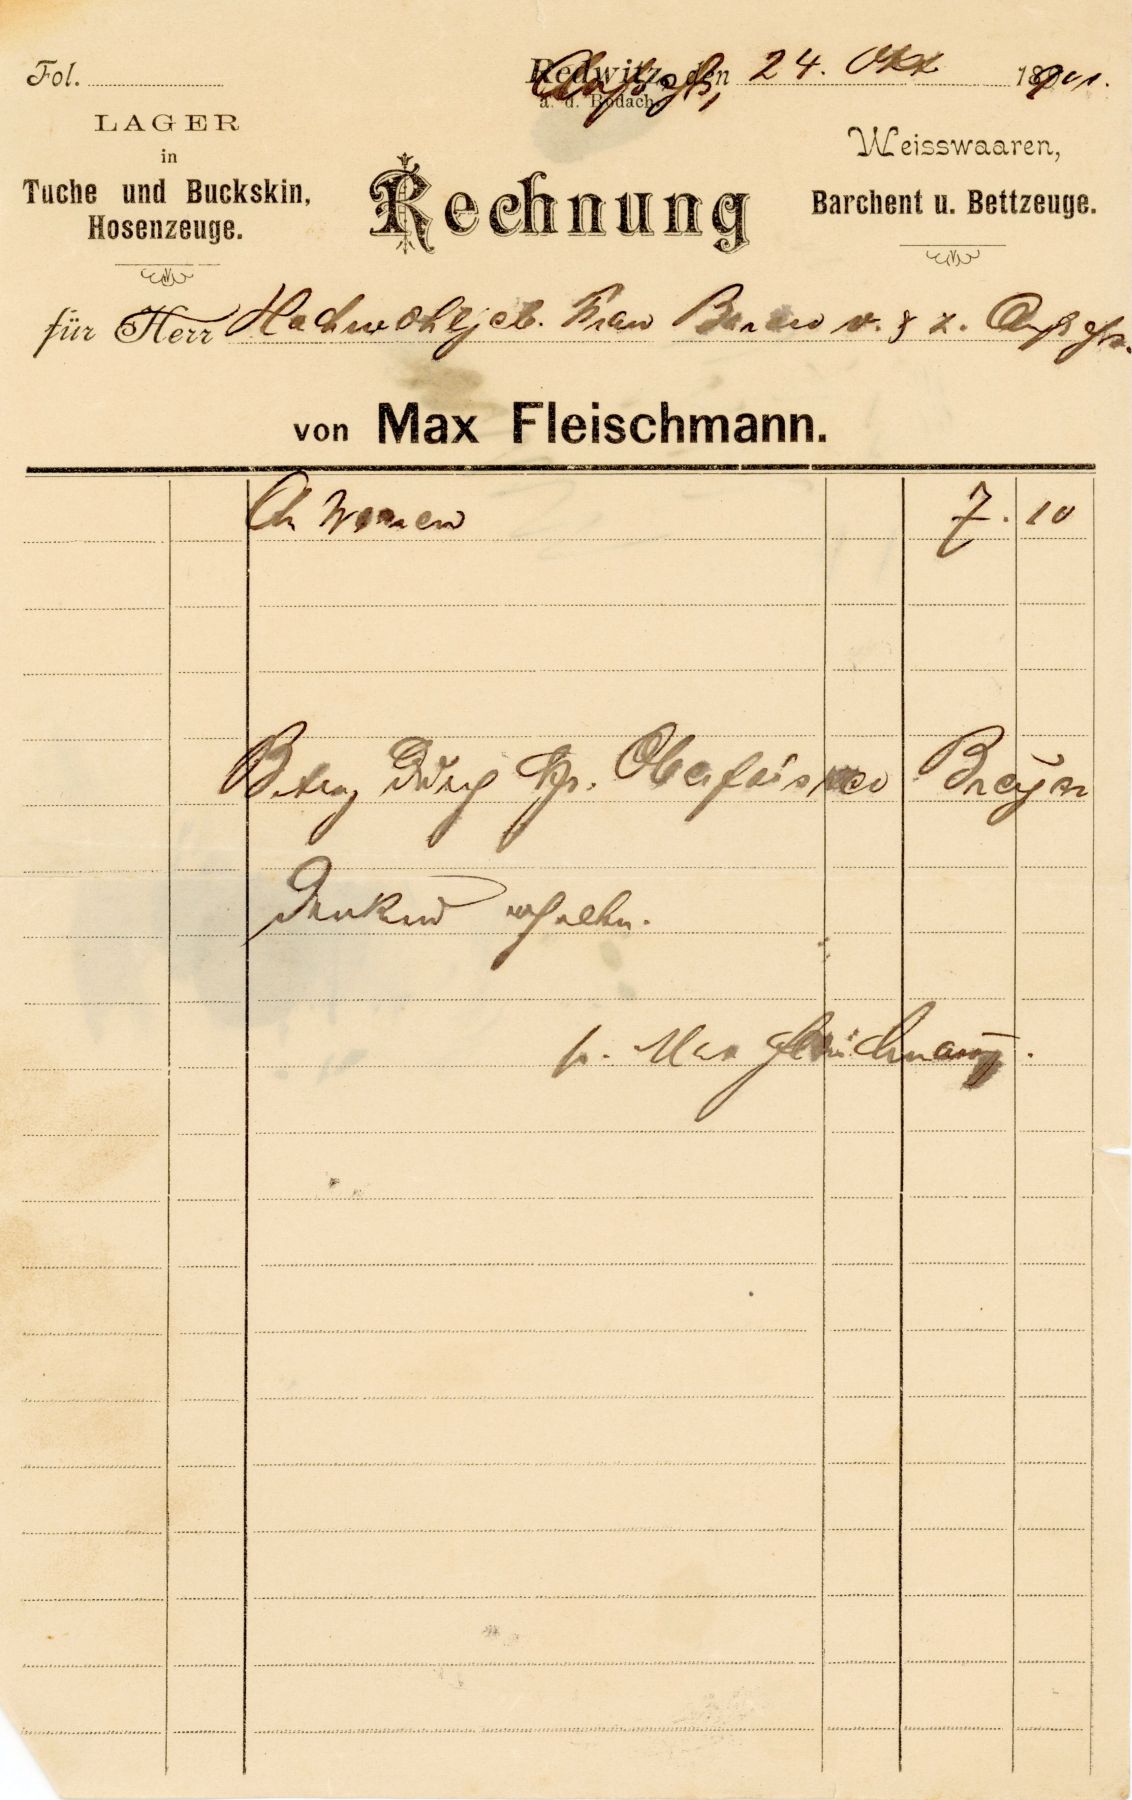 Fol.
Redwitz, den 24. Okt 1901.
a. d. Rodach.
LAGER
in
Tuche und Buckskin,
Hosenzeuge.
Rechnung
Weisswaaren,
Barchent u. Bettzeuge.
für Herr Hochwohlgeb. Frau Baron v. & z. Aufseß.
von Max Fleischmann.
An Waren 7. 10
Betrag durch Hr. Oberförster
dankend erhalten.
p. Max Fleischmann.